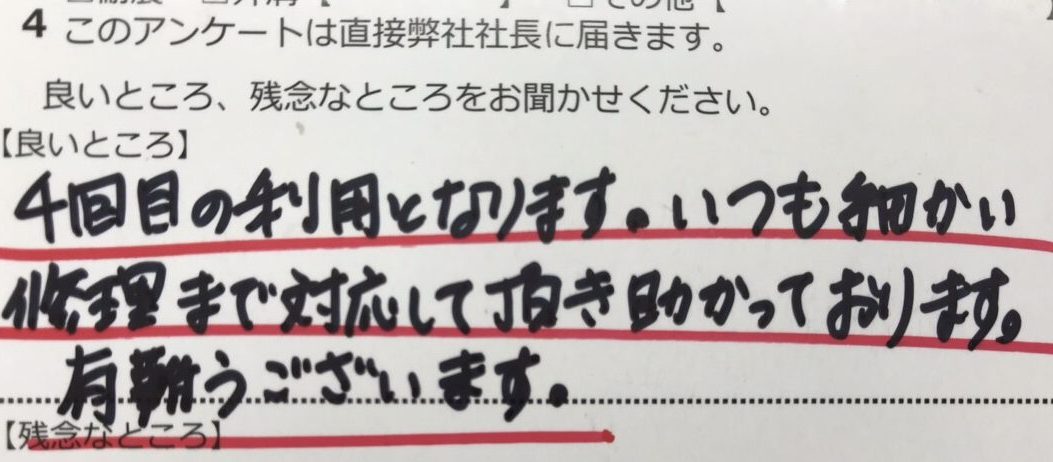 4 このアンケートは直接弊社社長に届きます。
良いところ、残念なところをお聞かせください。
【良いところ】
4回目の利用となります。いつも細かい
修理まで対応して頂き助かっております。
有難うございます。
【残念なところ】